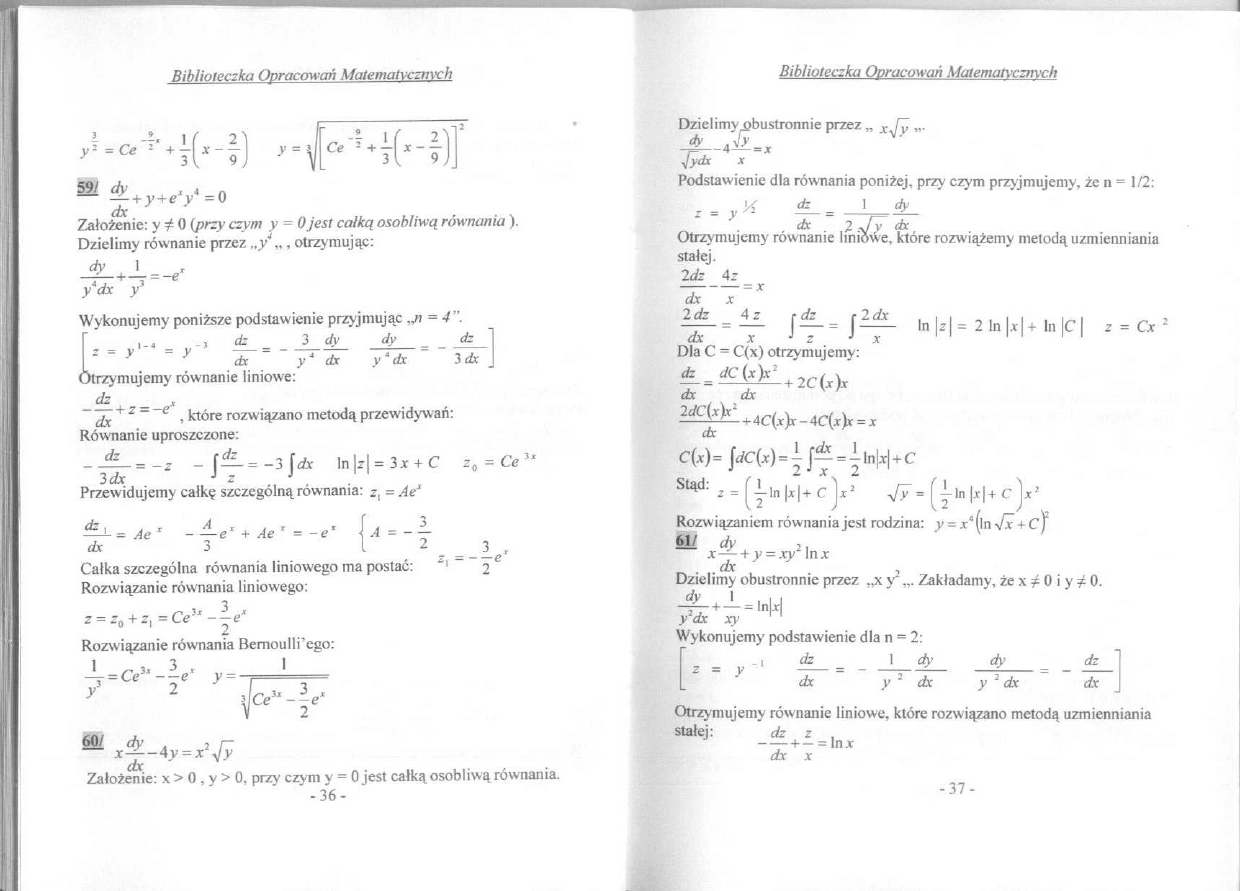 Biblioteczka Opracowań Matematycznych
y^{3/2} = Ce^{-\frac{9}{2}x} + \frac{1}{3}\left(x - \frac{2}{9}\right)   y = \sqrt[3]{\left[Ce^{-\frac{9}{2}} + \frac{1}{3}\left(x - \frac{2}{9}\right)\right]^2}
59/ \frac{dy}{dx} + y + e^x y^4 = 0
Założenie: y ≠ 0 (przy czym y = 0 jest całką osobliwą równania ).
Dzielimy równanie przez „y^4 „ , otrzymując:
\frac{dy}{y^4 dx} + \frac{1}{y^3} = -e^x
Wykonujemy poniższe podstawienie przyjmując „n = 4”.
\left[ z = y^{1-4} = y^{-3}   \frac{dz}{dx} = -\frac{3}{y^4}\frac{dy}{dx}   \frac{dy}{y^4 dx} = -\frac{dz}{3dx} \right]
Otrzymujemy równanie liniowe:
-\frac{dz}{dx} + z = -e^x , które rozwiązano metodą przewidywań:
Równanie uproszczone:
-\frac{dz}{3dx} = -z   -\int\frac{dz}{z} = -3\int dx   ln |z| = 3x + C   z_0 = Ce^{3x}
Przewidujemy całkę szczególną równania: z_1 = Ae^x
\frac{dz_1}{dx} = Ae^x   -\frac{A}{3}e^x + Ae^x = -e^x   \left\{ A = -\frac{3}{2}
Całka szczególna równania liniowego ma postać: z_1 = -\frac{3}{2}e^x
Rozwiązanie równania liniowego:
z = z_0 + z_1 = Ce^{3x} - \frac{3}{2}e^x
Rozwiązanie równania Bernoulli’ego:
\frac{1}{y^3} = Ce^{3x} - \frac{3}{2}e^x   y = \frac{1}{\sqrt[3]{Ce^{3x} - \frac{3}{2}e^x}}
60/ x\frac{dy}{dx} - 4y = x^2\sqrt{y}
Założenie: x > 0 , y > 0, przy czym y = 0 jest całką osobliwą równania.
- 36 -
Biblioteczka Opracowań Matematycznych
Dzielimy obustronnie przez „ x\sqrt{y} „.
\frac{dy}{\sqrt{y}dx} - 4\frac{\sqrt{y}}{x} = x
Podstawienie dla równania poniżej, przy czym przyjmujemy, że n = 1/2:
z = y^{1/2}   \frac{dz}{dx} = \frac{1}{2\sqrt{y}}\frac{dy}{dx}
Otrzymujemy równanie liniowe, które rozwiążemy metodą uzmienniania
stałej.
\frac{2dz}{dx} - \frac{4z}{x} = x
\frac{2dz}{dx} = \frac{4z}{x}   \int\frac{dz}{z} = \int\frac{2dx}{x}   ln |z| = 2 ln |x| + ln |C|   z = Cx^2
Dla C = C(x) otrzymujemy:
\frac{dz}{dx} = \frac{dC(x)x^2}{dx} + 2C(x)x
\frac{2dC(x)x^2}{dx} + 4C(x)x - 4C(x)x = x
C(x) = \int dC(x) = \frac{1}{2}\int\frac{dx}{x} = \frac{1}{2}ln|x| + C
Stąd: z = \left(\frac{1}{2}ln |x| + C\right)x^2   \sqrt{y} = \left(\frac{1}{2}ln |x| + C\right)x^2
Rozwiązaniem równania jest rodzina: y = x^4(ln\sqrt{x} + C)^2
61/ x\frac{dy}{dx} + y = xy^2 ln x
Dzielimy obustronnie przez „x y^2 „. Zakładamy, że x ≠ 0 i y ≠ 0.
\frac{dy}{y^2 dx} + \frac{1}{xy} = ln|x|
Wykonujemy podstawienie dla n = 2:
\left[ z = y^{-1}   \frac{dz}{dx} = -\frac{1}{y^2}\frac{dy}{dx}   \frac{dy}{y^2 dx} = -\frac{dz}{dx} \right]
Otrzymujemy równanie liniowe, które rozwiązano metodą uzmienniania
stałej: -\frac{dz}{dx} + \frac{z}{x} = ln x
- 37 -